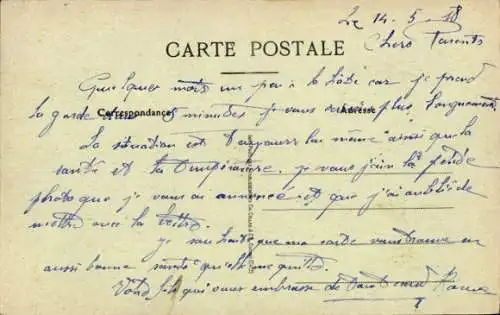 Le 14-5-18
Chers Parents
CARTE POSTALE
Quelques mots un peu à la hâte car je prend
la garde dans 5 minutes je vous plus longuement
Correspondance
Adresse
La situation est toujours la même ainsi que la
santé et la température. je vous join la petite
photo que je vous ai annoncé et que j'ai oublié de
mettre avec la lettre.
je souhaite que ma carte vous trouve en
aussi bonne santé qu'elle me quitte.
Votre fils qui vous embrasse de tout cœur